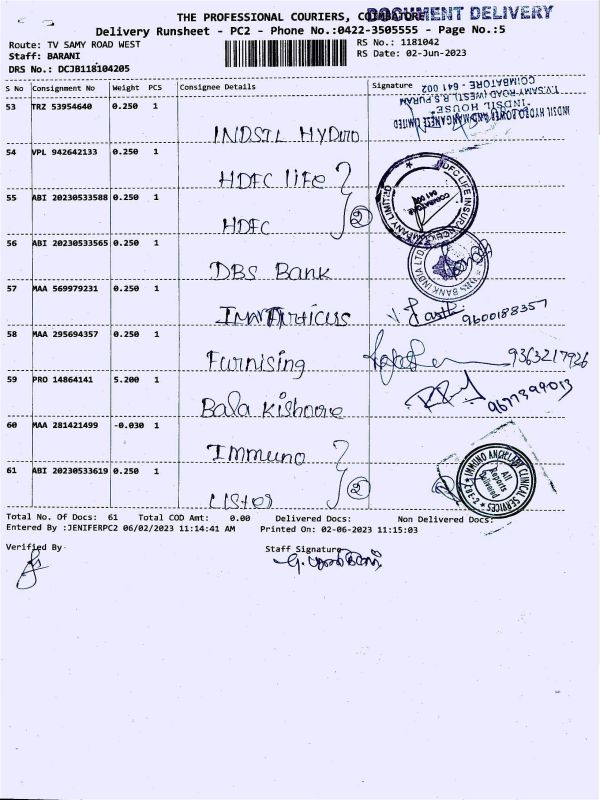 THE PROFESSIONAL COURIERS, COIMBATORE
DOCUMENT DELIVERY
Delivery Runsheet - PC2 - Phone No.:0422-3505555 - Page No.:5
Route: TV SAMY ROAD WEST
RS No.: 1181042
Staff: BARANI
RS Date: 02-Jun-2023
DRS No.: DCJB118104205
S No Consignment No Weight PCS Consignee Details Signature
53 TRZ 53954640 0.250 1
INDSIL HYDRO
INDSIL HYDRO POWER AND MANGANESE LIMITED
"INDSIL HOUSE"
T.V.SAMY ROAD (WEST), R.S.PURAM
COIMBATORE - 641 002
54 VPL 942642133 0.250 1
HDFC life
HDFC LIFE INSURANCE COMPANY LIMITED
COIMBATORE
641 002
55 ABI 20230533588 0.250 1
HDFC
2
56 ABI 20230533565 0.250 1
DBS Bank
DBS BANK INDIA LTD
57 MAA 569979231 0.250 1
9600188357
58 MAA 295694357 0.250 1
Furnising
9363217926
59 PRO 14864141 5.200 1
Bala Kishoore
9677399013
60 MAA 281421499 -0.030 1
Immuno
61 ABI 20230533619 0.250 1
Lister
2
IMMUNO ANCILLARY CLINICAL SERVICES
CBE-2
All
Reports
Delivered
Total No. Of Docs: 61 Total COD Amt: 0.00 Delivered Docs: Non Delivered Docs:
Entered By :JENIFERPC2 06/02/2023 11:14:41 AM Printed On: 02-06-2023 11:15:03
Verified By
Staff Signature